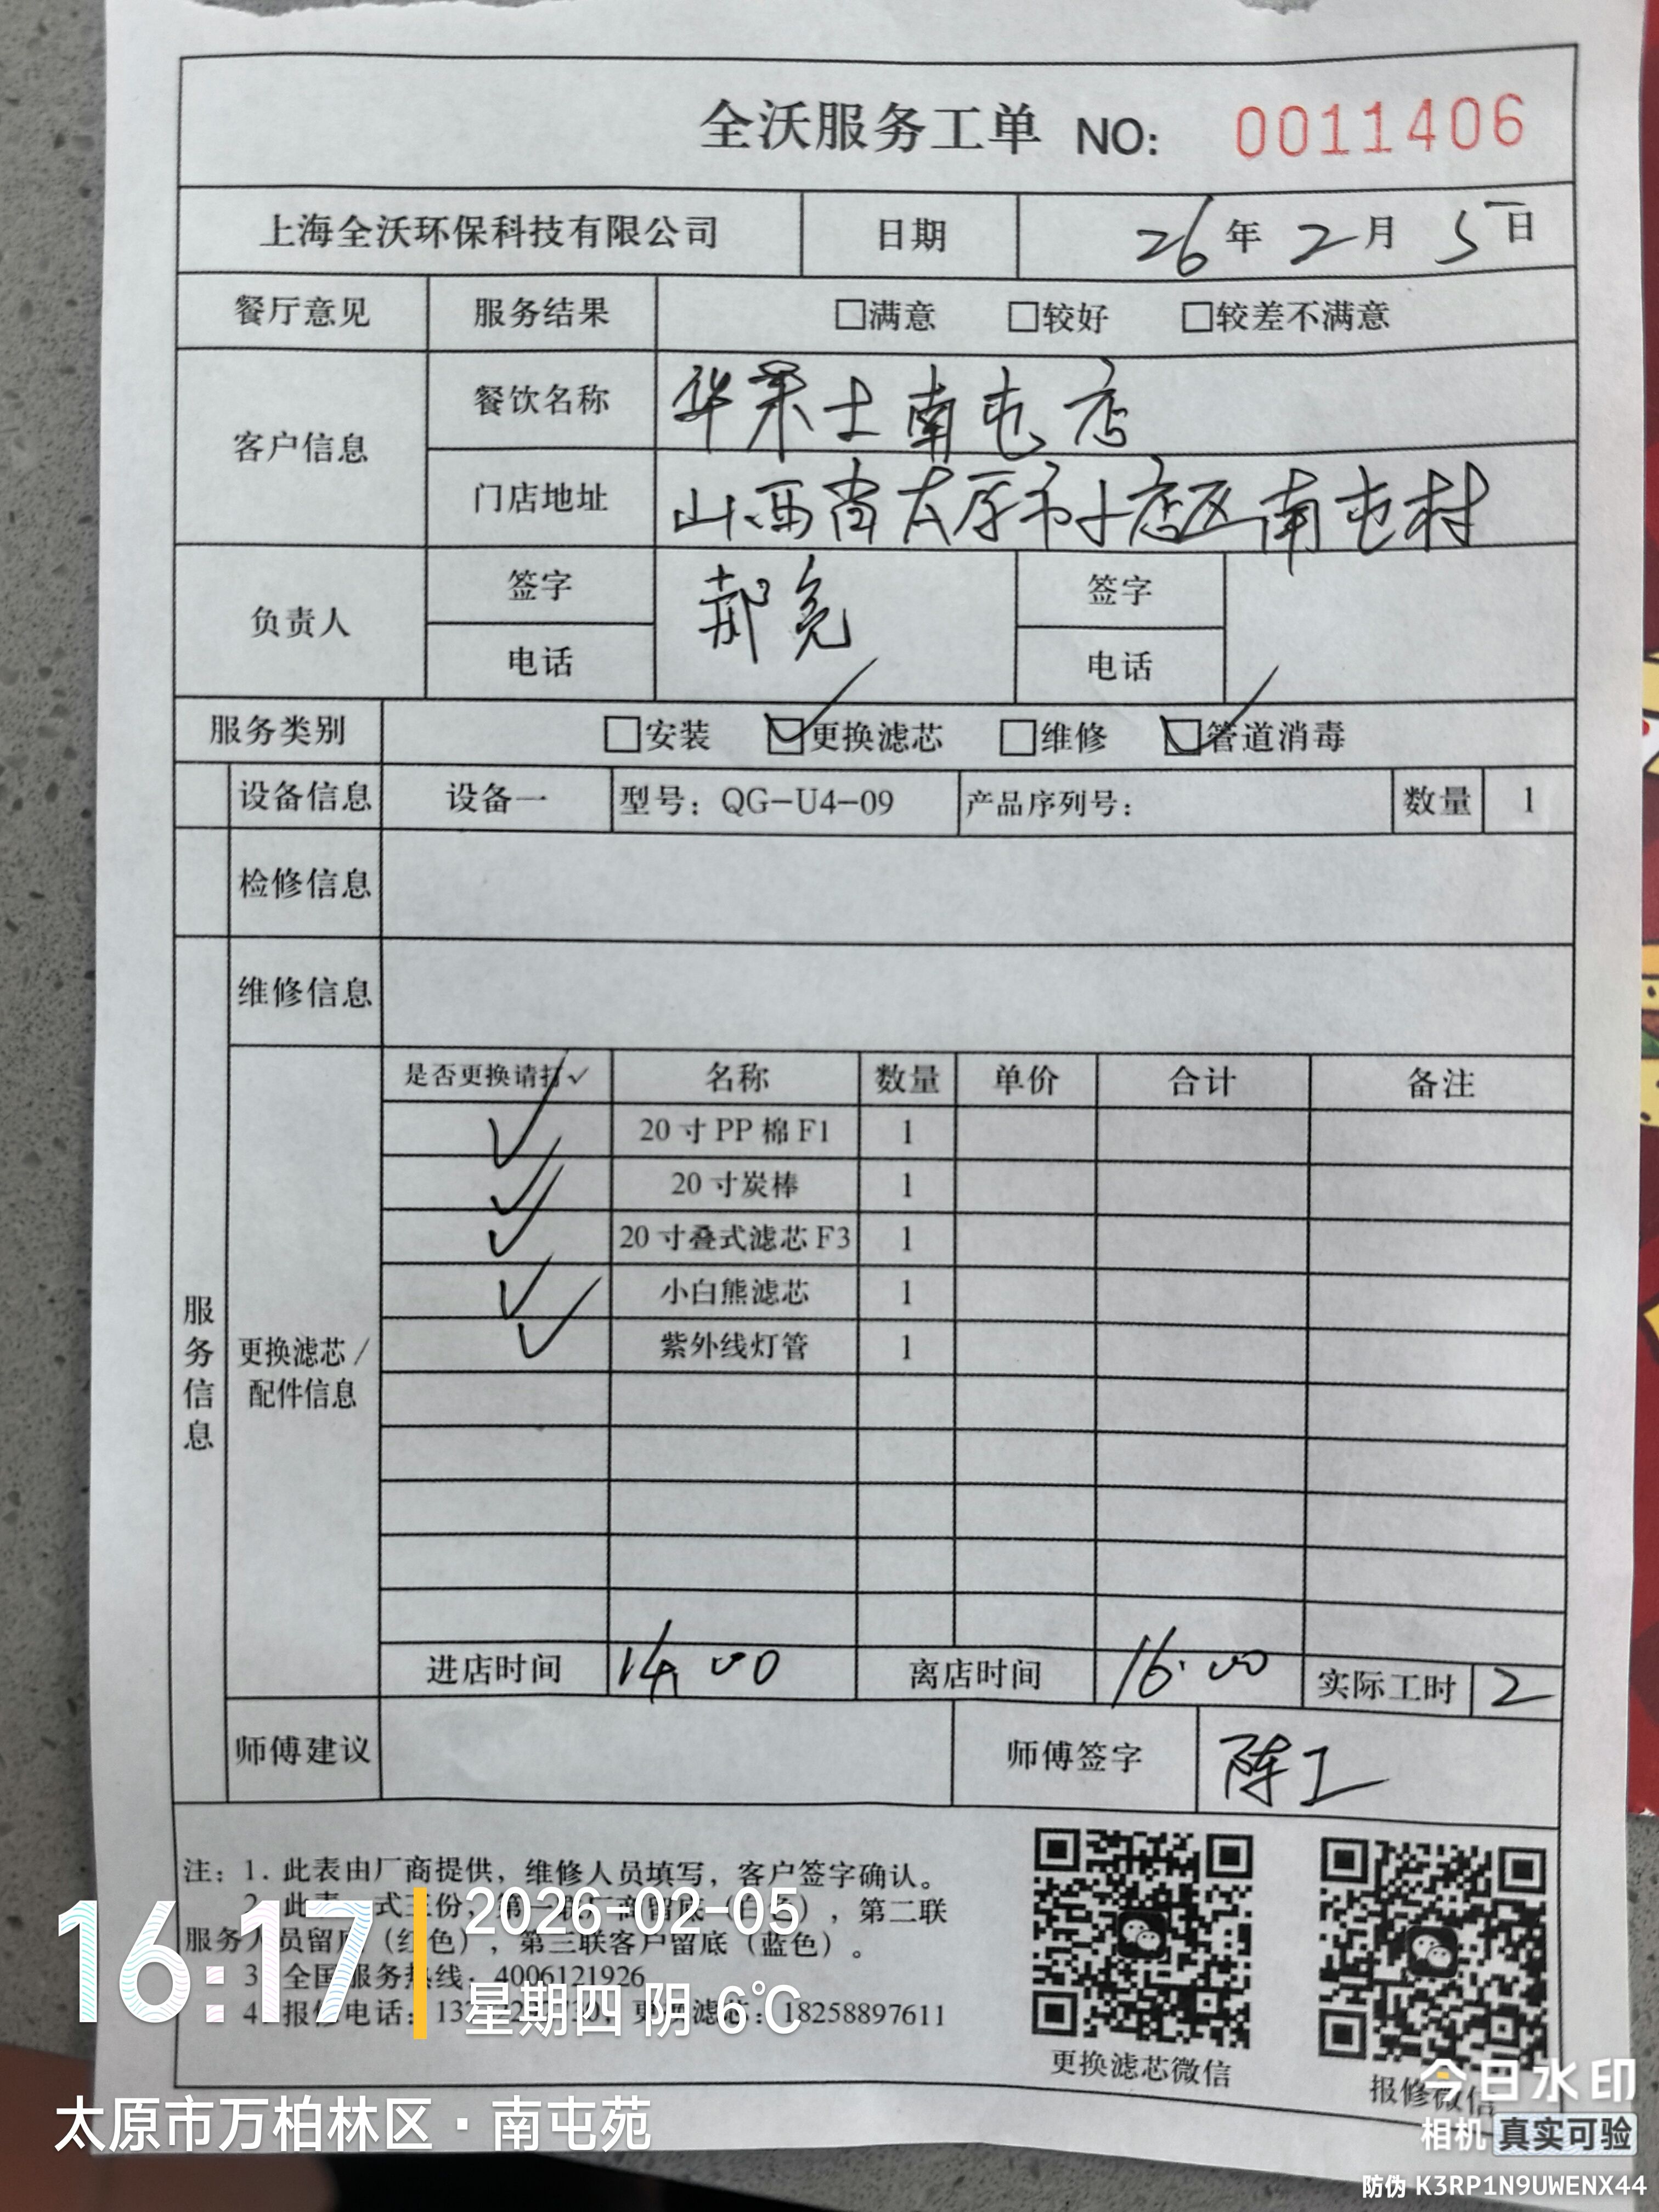 全沃服务工单 NO: 0011406
上海全沃环保科技有限公司 日期 26年2月5日
餐厅意见 服务结果 □满意 □较好 □较差不满意
客户信息 餐饮名称 华莱士南屯店
门店地址 山西省太原市小店区南屯村
负责人 签字 郝亮 签字
电话 电话
服务类别 □安装 ☑更换滤芯 □维修 ☑管道消毒
设备信息 设备一 型号：QG-U4-09 产品序列号： 数量 1
检修信息
维修信息
服务信息
更换滤芯/配件信息
是否更换请打✓ 名称 数量 单价 合计 备注
✓ 20寸PP棉F1 1
✓ 20寸炭棒 1
✓ 20寸叠式滤芯F3 1
✓ 小白熊滤芯 1
✓ 紫外线灯管 1
进店时间 14:00 离店时间 16:00 实际工时 2
师傅建议 师傅签字 陈工
注：1. 此表由厂商提供，维修人员填写，客户签字确认。
2. 此表一式三份，第一联厂商留底（白色），第二联
服务人员留底（红色），第三联客户留底（蓝色）。
3. 全国服务热线：4006121926
4. 报修电话： 更换滤芯：18258897611
更换滤芯微信
报修微信
16:17
2026-02-05
星期四 阴 6℃
太原市万柏林区·南屯苑
今日水印
相机 真实可验
防伪 K3RP1N9UWENX44